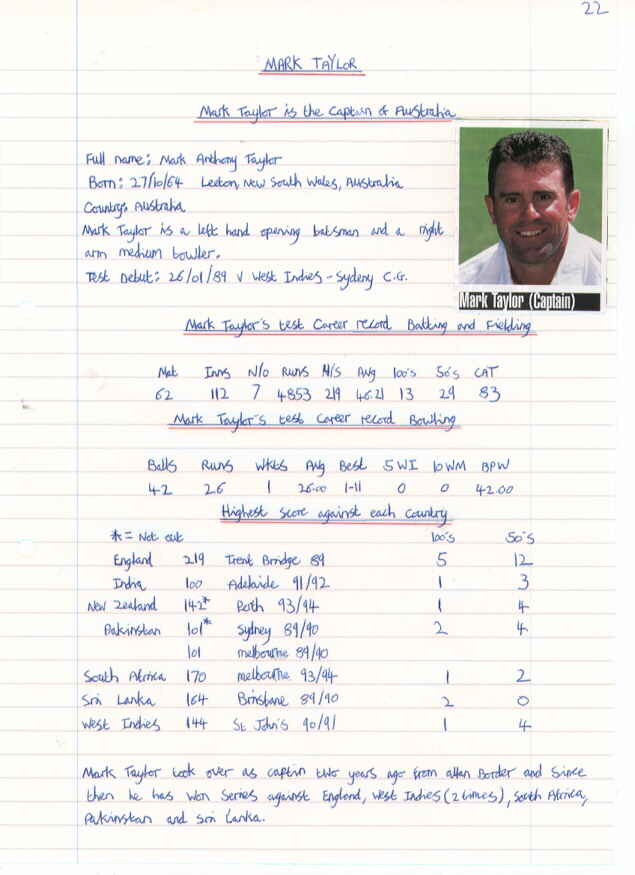 22
MARK TAYLOR
Mark Taylor is the Captain of Australia
Full name: Mark Anthony Taylor
Born: 27/10/64 Leeton, New South Wales, Australia
Country: Australia
Mark Taylor is a left hand opening batsman and a right
arm medium bowler.
Test Debut: 26/01/89 V West Indies - Sydeny C.G.
Mark Taylor (Captain)
Mark Taylor's test Career record Batting and Fielding
Mat Inns N/o Runs H/S Avg 100's 50's CAT
62 112 7 4853 219 46.21 13 29 83
Mark Taylor's test Career record Bowling
Balls Runs Wkts Avg Best 5WI 10WM BPW
42 26 1 26.00 1-11 0 0 42.00
Highest score against each country
*= Not out 100's 50's
England 219 Trent Bridge 89 5 12
India 100 Adelaide 91/92 1 3
New Zealand 142* Perth 93/94 1 4
Pakinstan 101* Sydney 89/90 2 4
101 melbourne 89/90
South Africa 170 melbourne 93/94 1 2
Sri Lanka 164 Brisbane 89/90 2 0
West Indies 144 St John's 90/91 1 4
Mark Taylor took over as captin two years ago from allan Border and since
then he has won series against England, West Indies (2 times), South Africa,
Pakinstan and Sri Lanka.